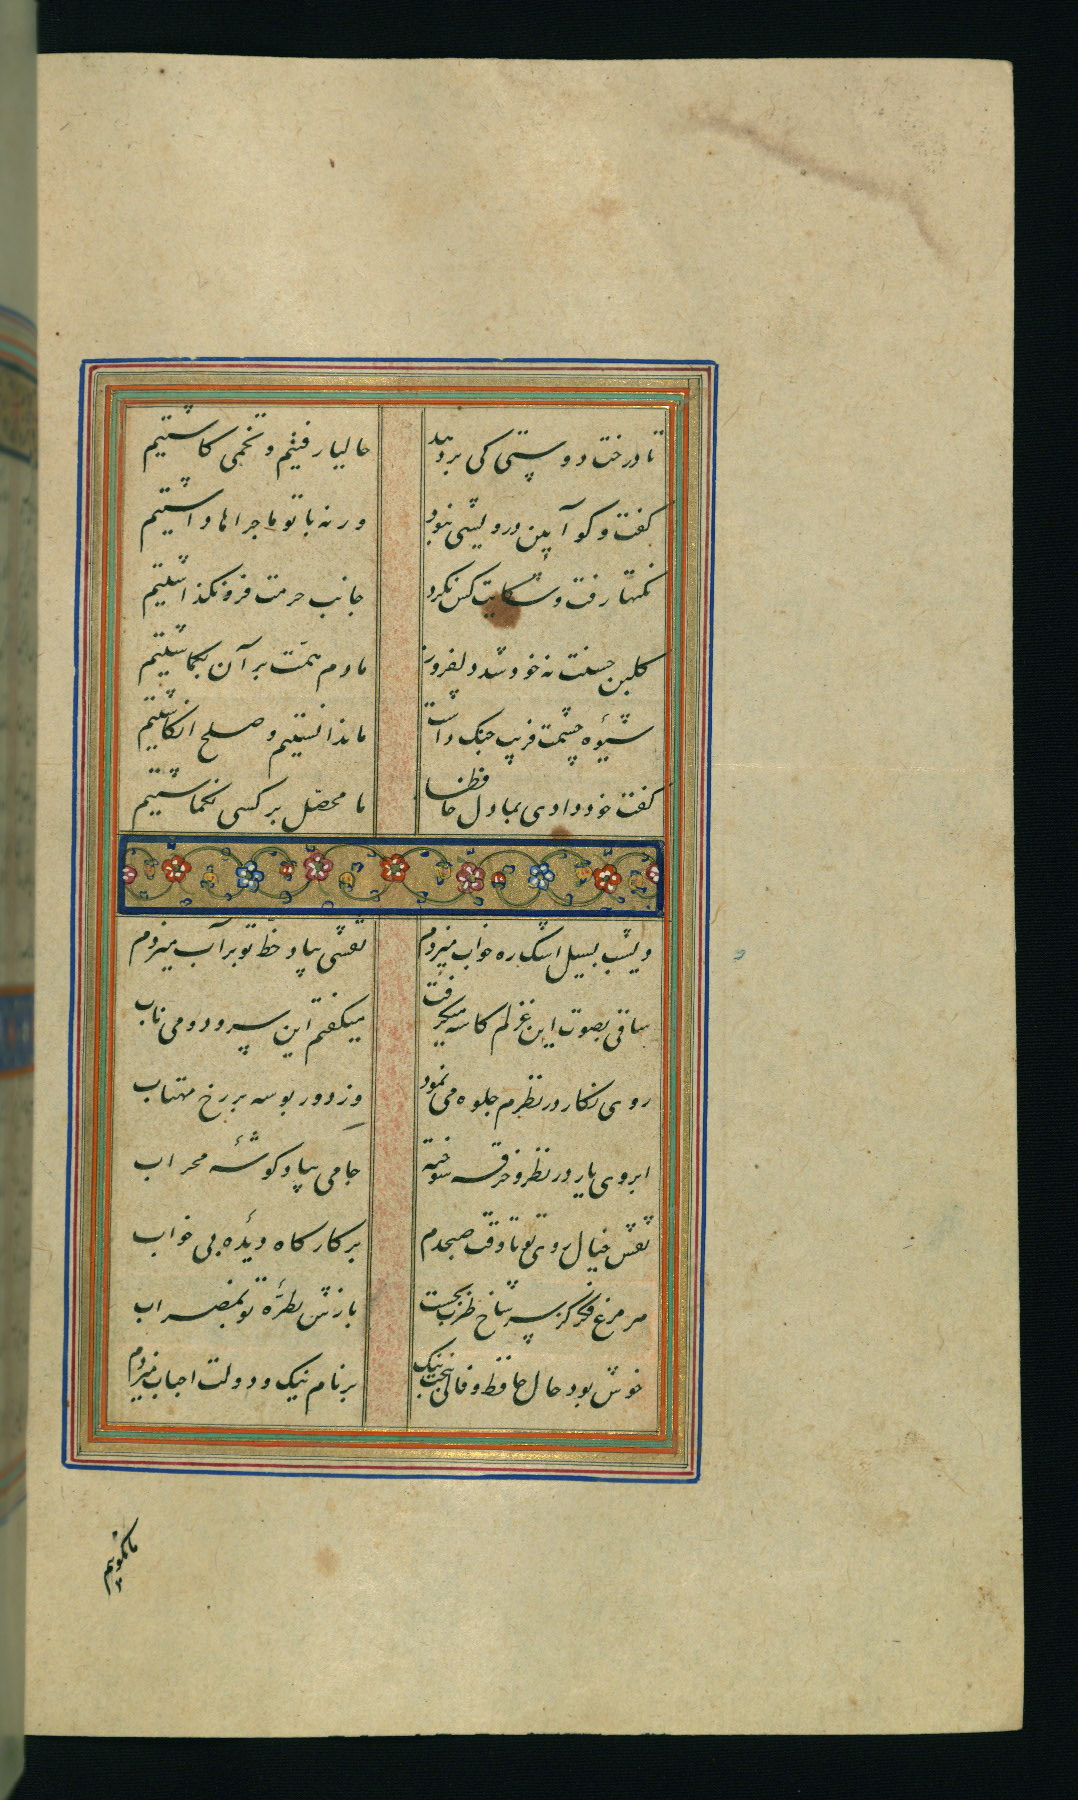 تا درخت دوستی کی بر دهد حالیا رفتیم و تخمی کاشتیم
کفت و کو آیین درویشی نبود ورنه با تو ماجراها داشتیم
نکتها رفت و شکایت کس نکرد جانب حرمت فرو نکذاشتیم
کلبن حسنت نه خود شد دلفروز ما دم همّت بر آن بکماشتیم
شیوهٔ چشمت فریب جنک داشت ما ندانستیم و صلح انکاشتیم
کفت خود دادی بما دل حافظا ما محصّل بر کسی نکماشتیم
دیشب بسیل اشک ره خواب میزدم نقشی بیاد خطّ تو بر آب میزدم
ساقی بصوت این غزلم کاسه میکرفت میکفتم این سرود و می ناب
روی نکار در نظرم جلوه می نمود وز دور بوسه بر رخ مهتاب
ابروی یار در نظر و خرقه سوخته جامی بیاد کوشهٔ محراب
نقش خیال روی تو تا وقت صبحدم بر کارکاه دیدهٔ بی خواب
هر مرغ فکر کز سر شاخ طرب بجست بازش بطرّهٔ تو بمضراب
خوش بود حال حافظ و فالی ببخت نیک بر نام نیک و دولت احباب میزدم
ما نکوییم